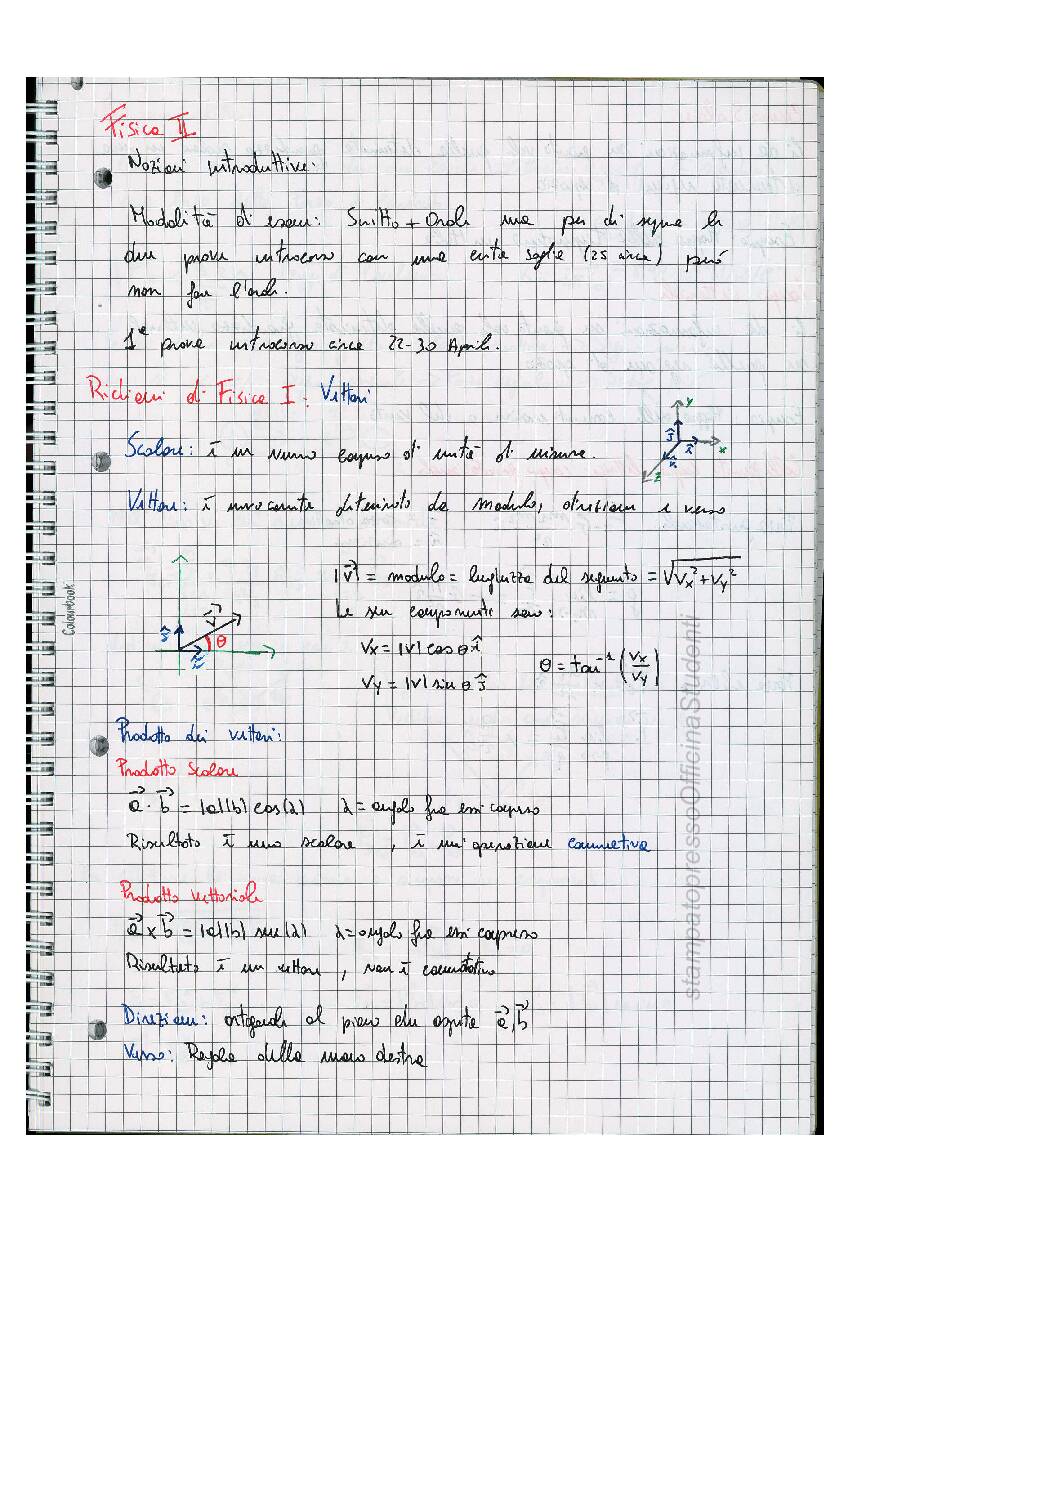 Fisica II
Nozioni introduttive:
Modalità di esame: Scritto + Orale ma per chi segue le
due prove intracorso con una certa soglia (25 circa) può
non fare l'orale.
1ª prova intracorso circa 22-30 Aprile.
Richiami di Fisica I: Vettori
Scalare: è un numero di unità di misura.
Vettore: è univocamente determinato da modulo, direzione e verso
y
ĵ
î
x
k
z
|v⃗| = modulo = lunghezza del segmento = √(Vx² + Vy²)
Le sue componenti sono:
v⃗
ĵ
θ
î
Vx = |v| cos θ î
θ = tan⁻¹ (Vx/Vy)
Vy = |v| sin θ ĵ
Prodotto dei vettori:
Prodotto Scalare
a⃗ · b⃗ = |a||b| cos(λ) λ = angolo fra essi compreso
Risultato è uno scalare, è un'operazione commutativa
Prodotto vettoriale
a⃗ x b⃗ = |a||b| sen(λ) λ = angolo fra essi compreso
Risultato è un vettore, non è commutativo
Direzione: ortogonale al piano che ospita a⃗,b⃗
Verso: Regola della mano destra
Colourbook
stampatopressoOfficinaStudenti